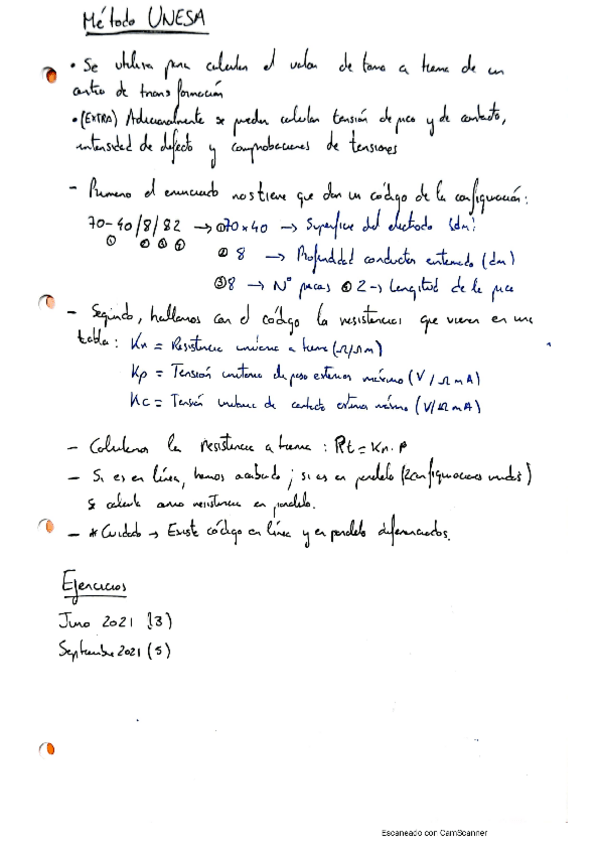 Método UNESA
• Se utiliza para calcular el valor de toma a tierra de un
centro de transformación
• (EXTRA) Adicionalmente se pueden calcular tensión de paso y de contacto,
intensidad de defecto y comprobaciones de tensiones
- Primero el enunciado nos tiene que dar un código de la configuración:
70-40/8/82 → ① 70x40 → Superficie del electrodo (dm)
① ② ③ ④
② 8 → Profundidad conductor enterrado (dm)
③ 8 → Nº picas ④ 2 → Longitud de la pica
- Segundo, hallamos con el código la resistencia que vienen en una
tabla: Kr = Resistencia unitaria a tierra (Ω/Ωm)
Kp = Tensión unitaria de paso exterior máximo (V/ΩmA)
Kc = Tensión unitaria de contacto exterior máximo (V/ΩmA)
- Calculamos la resistencia a tierra: Rt = Kr.ρ
- Si es en línea, hemos acabado; si es en paralelo (2 configuraciones unidas)
se calcula como resistencia en paralelo.
- * Cuidado → Existe código en línea y en paralelo diferenciados.
Ejercicios
Junio 2021 (3)
Septiembre 2021 (5)
Escaneado con CamScanner